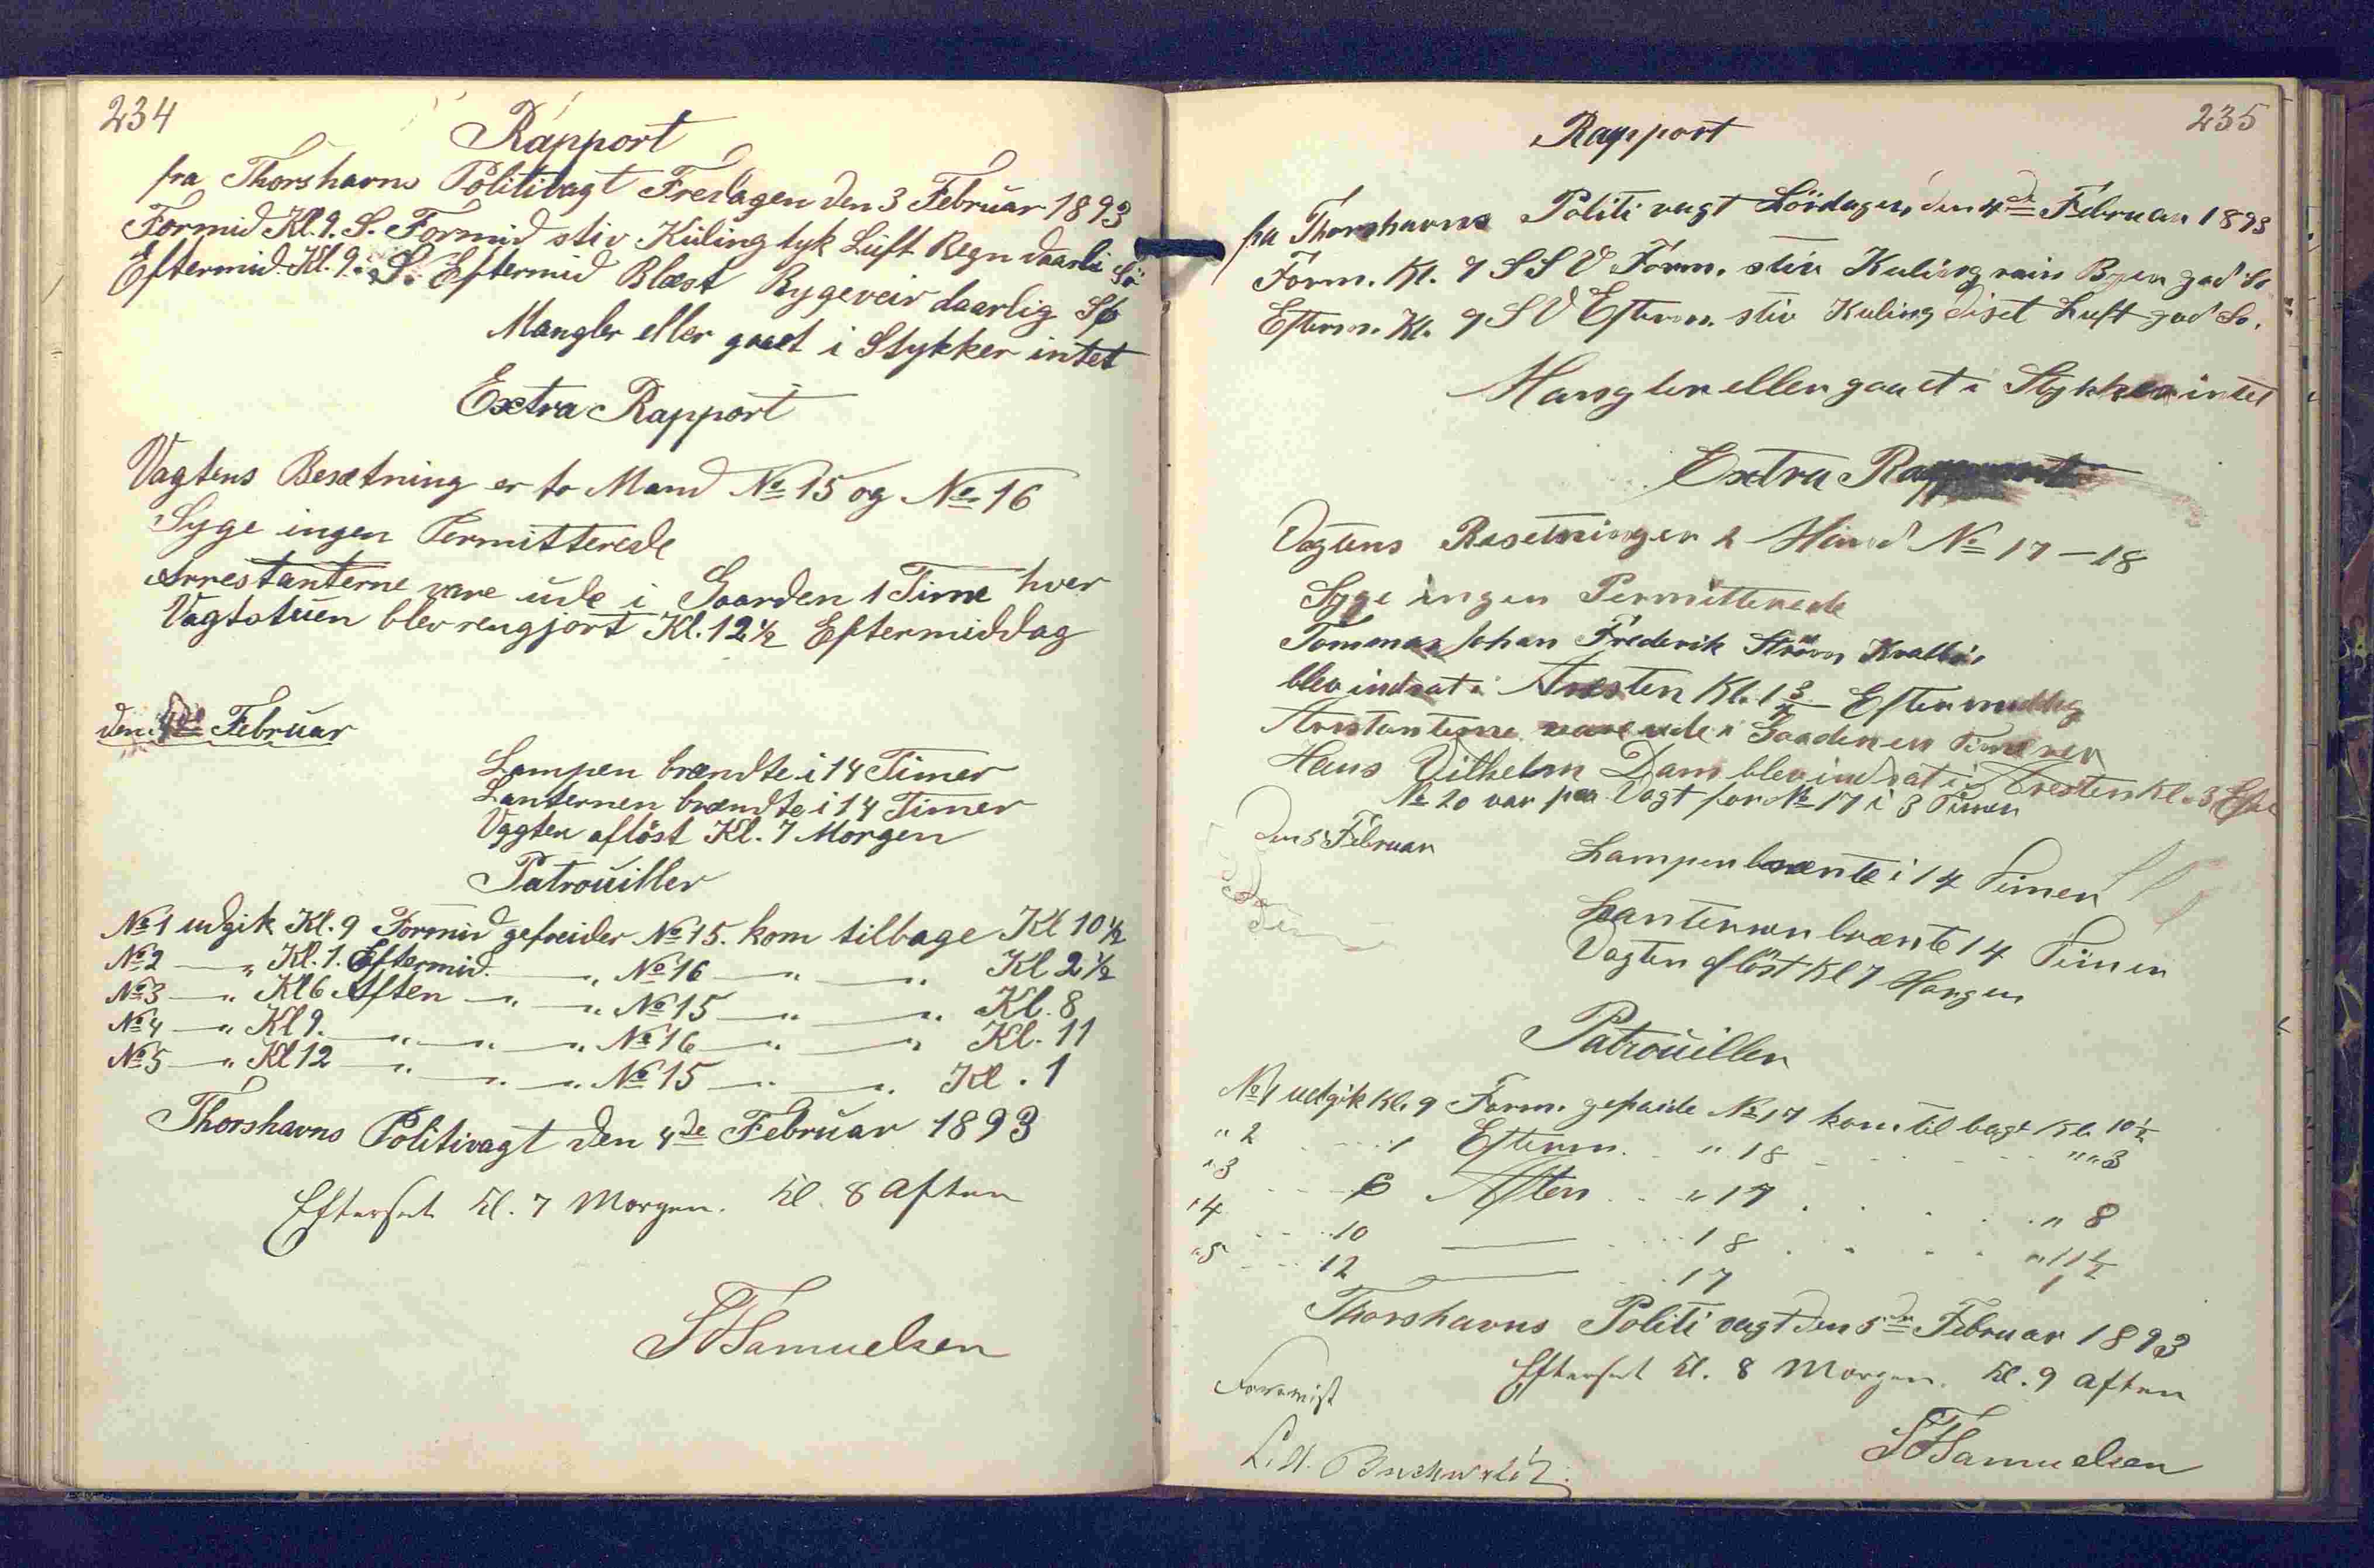 234
Rapport
fra Thorshavns Politivagt Fredagen den 3 Februar 1893
Formid Kl. 9. S. Formid stiv Kuling tyk Luft Regn daarli Sö
Eftermid Kl. 9. S. Eftermid Blæst Bygeveir daarlig Sö
Mangler eller gaaet i Stykker intet
Extra Rapport
Vagtens Besætning er to Mand No 15 og No 16
Syge ingen Permitterede
Arrestanterne vare ude i Gaarden 1 Time hver
Vagtstuen blev rengjort Kl. 12 1/2 Eftermiddag
den 4de Februar
Lampen brændte i 14 Timer
Lanternen brændte i 14 Timer
Vagten aflöst Kl. 7 Morgen
Patrouiller
No 1 udgik Kl. 9 Formid gefreider No 15. kom tilbage Kl 10 1/2
No 2 — " Kl. 1. Eftermid. — " No 16 — " — " Kl 2 1/2
No 3 — " Kl 6 Aften — " — " No 15 — " — " Kl. 8
No 4 — " Kl 9. — " — " — " No 16 — " — " Kl. 11
No 5 — " Kl 12 — " — " — " No 15 — " — " Kl. 1
Thorshavns Politivagt den 4de Februar 1893
Efterset Kl. 7 Morgen. Kl. 8 Aften
Samuelsen
235
Rapport
fra Thorshavns Politi vagt Lördagen den 4de Februar 1893
Form. Kl. 9 SSV Form. stiv Kuling Byer god Sö
Efterm. Kl. 9 SV Efterm. stiv Kuling diset Luft god Sö.
Mangler eller gaaet i Stykker intet
Extra Rapport
Vagtens Besetning er 2 Mand No 17 — 18
Syge ingen Permitterede
Tommas Johan Frederik Ström
blev indsat i Aresten Kl. 1 Eftermiddag
Arestanterne vare ude i Gaaden en Time ver
Hans Vilhelm Dam blev indsat i Aresten Kl. 3 Efte
No 20 var paa Vagt for No 17 i 3 Timer
Den 5 Februar
Lampen brænte i 14 Timer
Lanternen brænte 14 Timer
Vagten aflöst Kl 7 Morgen
Patrouiller
No 1 udgik Kl. 9 Form. gefraide No 17 kom til bage Kl. 10 1/2
" 2 1 Efterm. " 18 " " 3
" 3 6 Aften " 17 " 8
" 4 10 — 18 " 11 1/2
" 5 12 — 17 1
Thorshavns Politi vagt den 5de Februar 1893
Efterset Kl. 8 Morgen. Kl. 9 Aften
Samuelsen